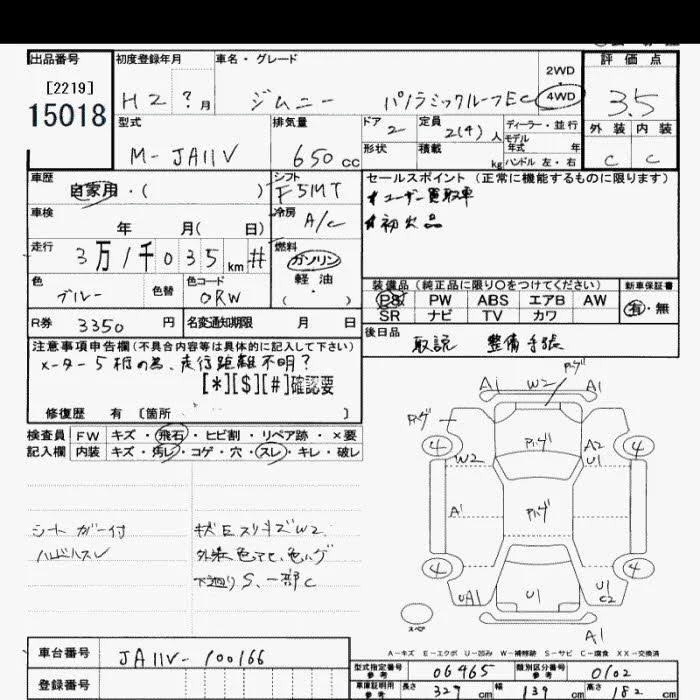 出品番号 初度登録年月 車名・グレード 評価点
[2219]
15018
H2 ?月 ジムニー パノラミックルーフEC 2WD 4WD 3.5
型式 排気量 ドア 2 定員 2(4)人 ディーラー・並行 外装 内装
モデル年式 年式
M-JA11V 650cc 形状 積載 kg ハンドル 左・右 C C
車歴 シフト セールスポイント(正常に機能するものに限ります)
自家用・( ) F5MT #ユーザー買取車
車検 冷房 #初出品
年 月( 日) A/C
走行 燃料
3万1千035km # ガソリン
軽油
色 色替 色コード ( ・ )
ブルー ORW
装備品(純正品に限り〇をつけてください) 新車保証書
PS PW ABS エアB AW 有・無
SR ナビ TV カワ
R券 3350円 名変通知期限 月 日
後日品 取説 整備手帳
注意事項申告欄(不具合内容等は具体的に記入して下さい)
メーター5桁の為、走行距離不明?
[*][$][#]確認要
修復歴 有 [箇所 ]
検査員 FW キズ・飛石・ヒビ割・リペア跡・×要
記入欄 内装 キズ・汚レ・コゲ・穴・スレ・キレ・破レ
シートカバー付
キズEスリキズW2
外装色アセ、色ハゲ
下廻りS、一部C
A1 W2 P.ハゲ A1
P.ハゲ
4 P.ハゲ A2 4
W2 U1
A1 P.ハゲ
4 4
UA1 U1 U1
C2
スペア
A1
A-キズ E-エクボ U-凹み W-補修跡 S-サビ C-腐食 XX-交換済
車台番号 JA11V-100166
型式指定番号 参考 06465 類別区分番号 参考 0102
登録番号
車庫証明用 参考 長さ 329 cm 幅 139 cm 高さ 182 cm